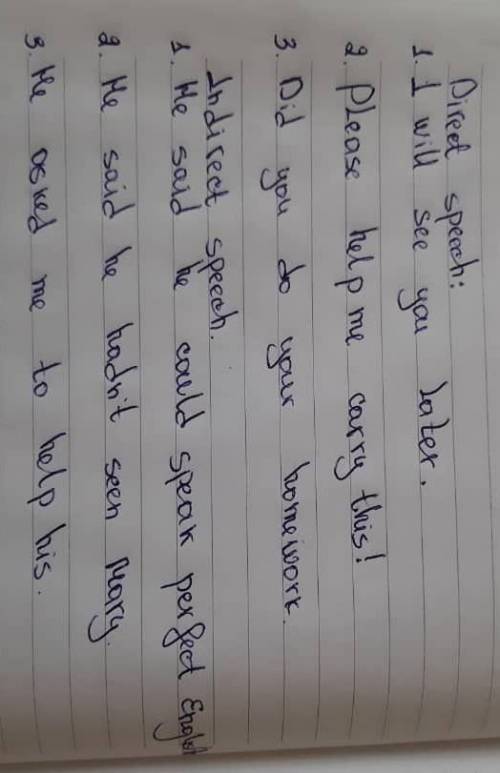 Direct speech:
1. I will see you later.
2. Please help me carry this!
3. Did you do your homework.
Indirect speech.
1. He said he could speak perfect English
2. He said he hadn't seen Mary.
3. He asked me to help his.